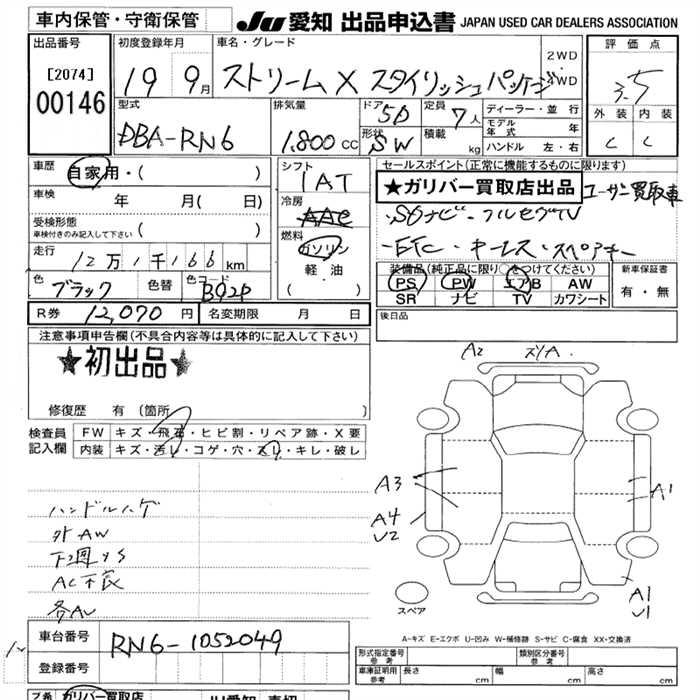 車内保管・守衛保管
JU 愛知 出品申込書 JAPAN USED CAR DEALERS ASSOCIATION
出品番号
[2074]
00146
初度登録年月
19 9月
車名・グレード
ストリーム X スタイリッシュパッケージ
2WD
4WD
評価点
3.5
外装 内装
C C
型式
DBA-RN6
排気量
1,800 CC
ドア 5D
形状 SW
定員 7人
積載 kg
ディーラー・並行
モデル年式 年
ハンドル 左・右
車歴
自家用・( )
車検 年 月( 日)
受検形態
車検付きのみ記入して下さい ( )
走行
12万1千166km
色 ブラック 色替 色コード B92P
シフト
IAT
冷房
AAC
燃料
ガソリン
軽油
( )
セールスポイント(正常に機能するものに限ります)
★ガリバー買取店出品 ユーザー買取車
・SDナビ・フルセグTV
・ETC・キーレス・スペアキー
装備品(純正品に限り○をつけてください)
PS PW エアB AW
SR ナビ TV カワシート
新車保証書
有・無
R券 12,070円
名変期限 月 日
後日品
注意事項申告欄(不具合内容等は具体的に記入して下さい)
★初出品★
修復歴 有(箇所 )
検査員
記入欄
FW キズ・飛石・ヒビ割・リペア跡・X要
内装 キズ・汚レ・コゲ・穴・スレ・キレ・破レ
ハンドルハゲ
外AW
下回りS
AC不良
各AU
A2
A3
A4
U2
A1
A1
U1
スペア
A-キズ E-エクボ U-凹み W-補修跡 S-サビ C-腐食 XX-交換済
車台番号
RN6-1052049
登録番号
形式指定番号
参考
類別区分番号
参考
車庫証明用
参考
長さ cm 幅 cm 高さ cm
ガリバー買取店
JU愛知